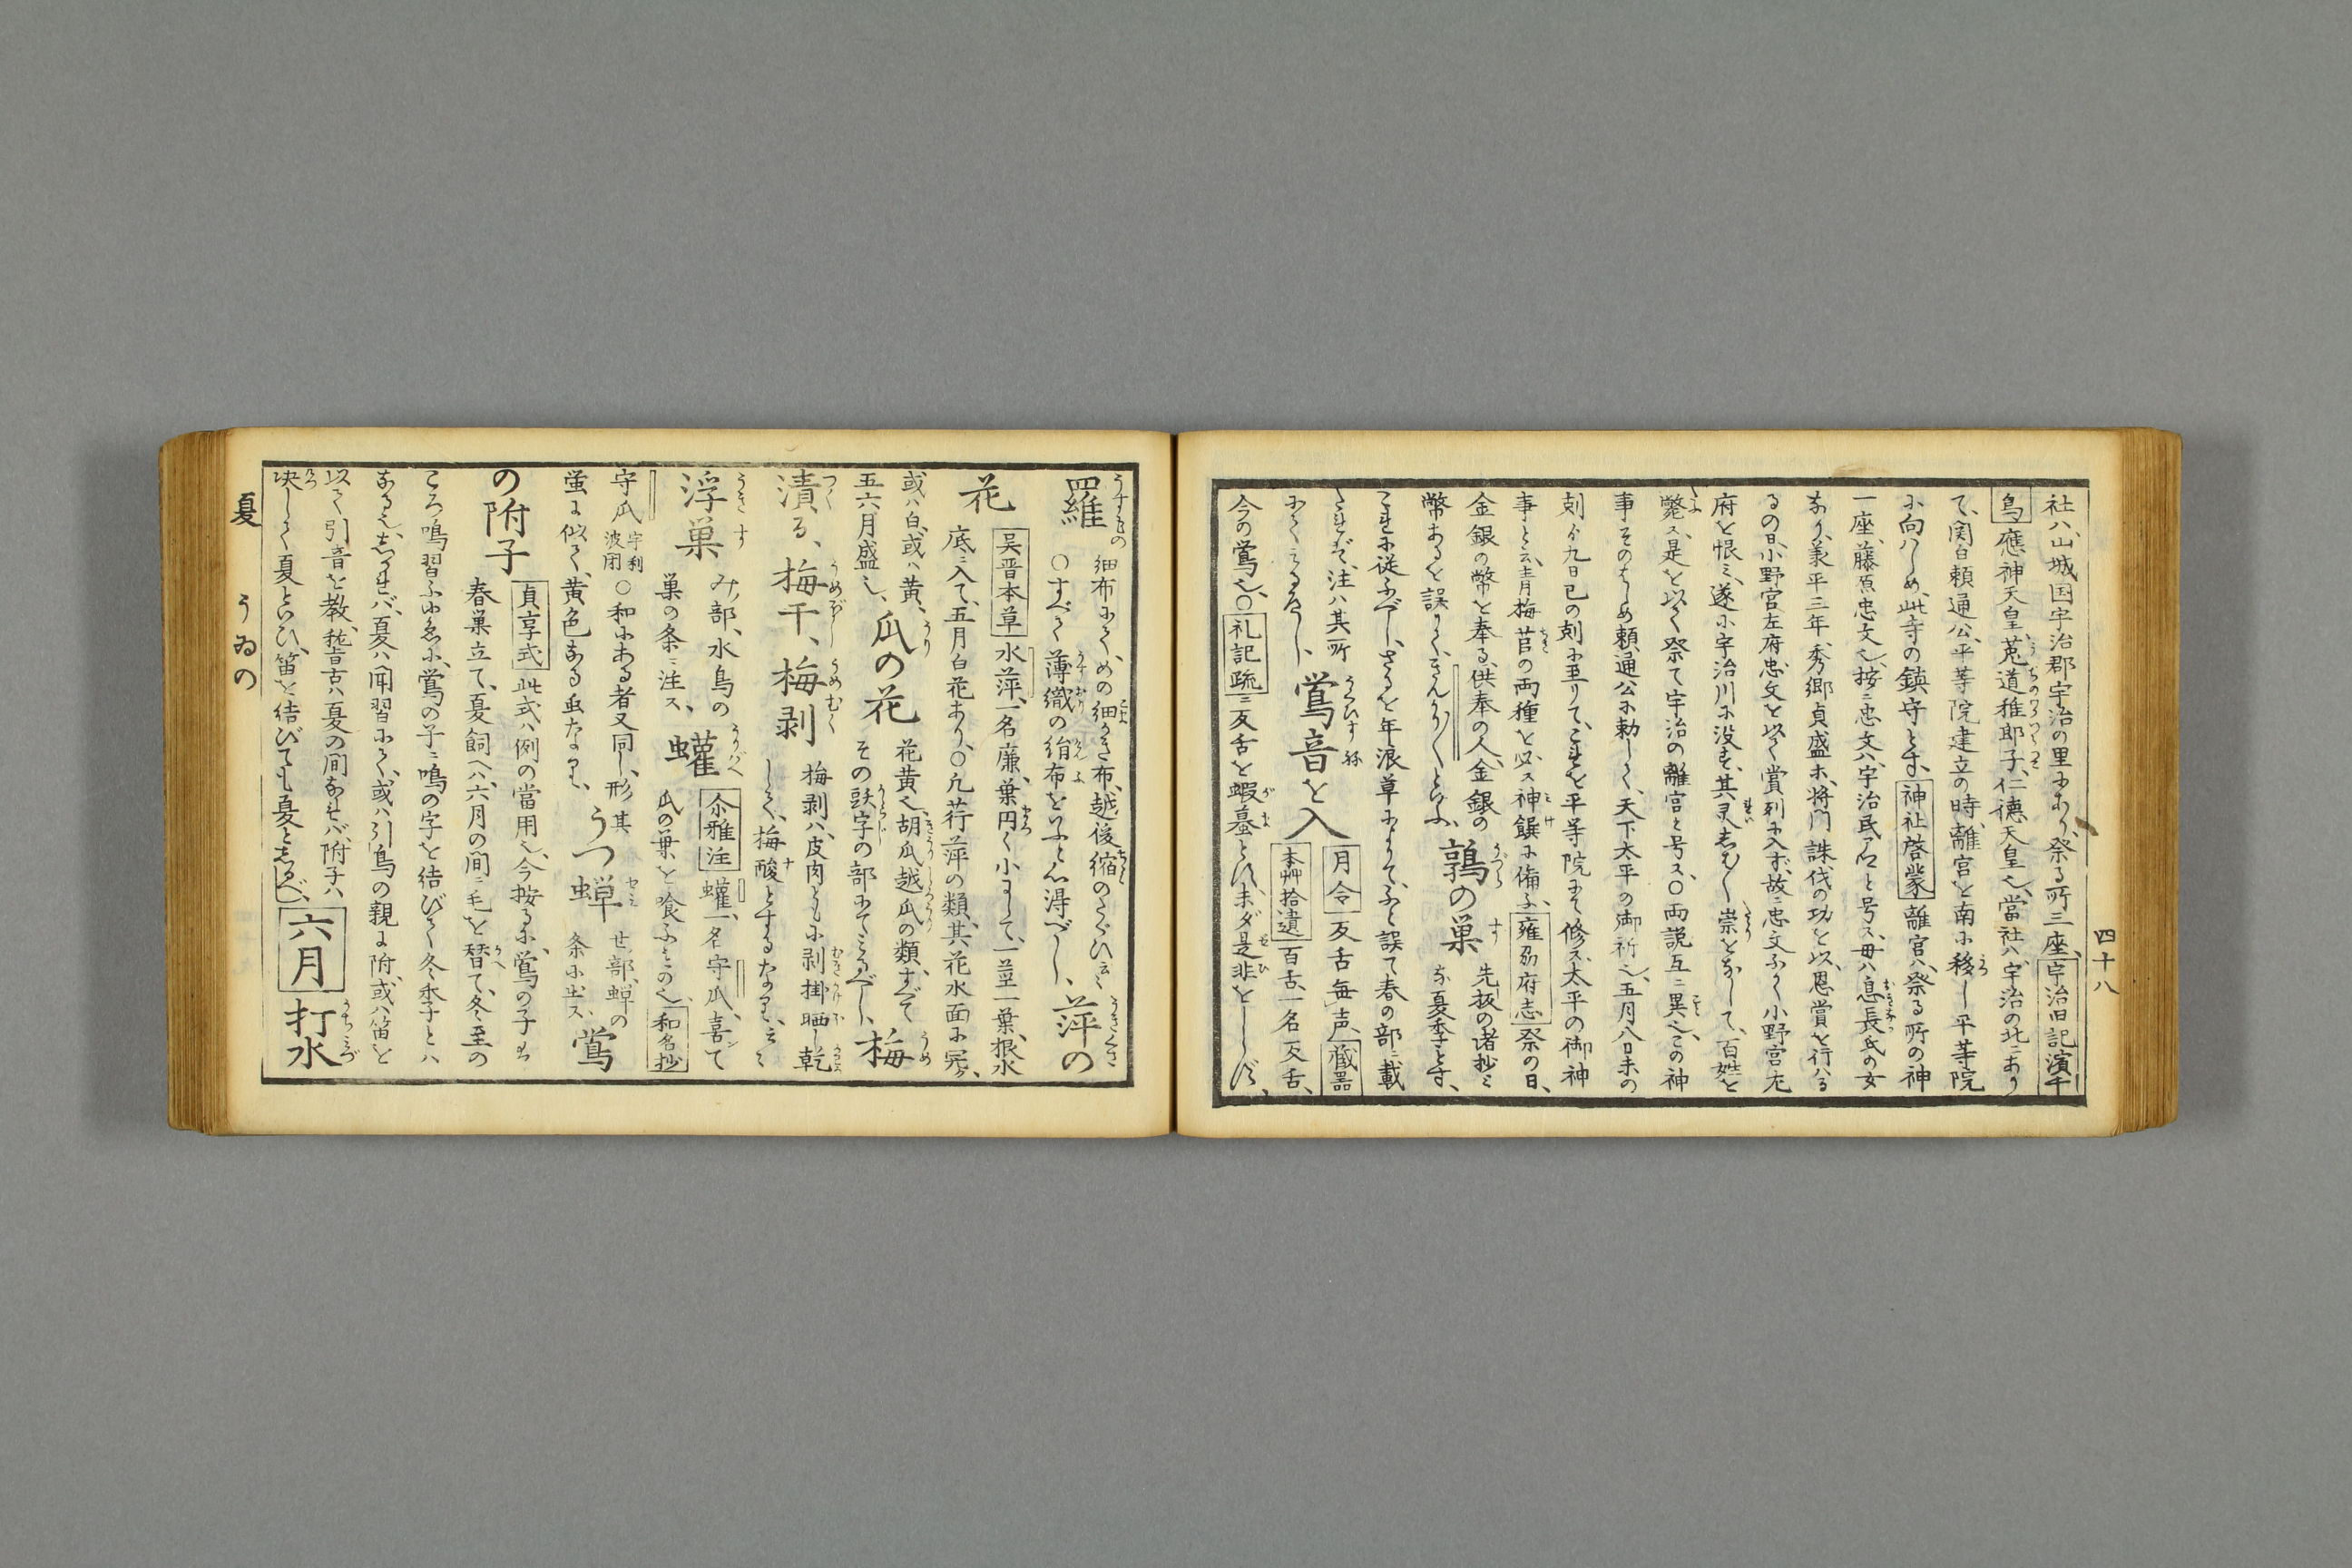 四十八
社ハ、山城国宇治郡宇治の里にあり、祭る所三座、宇治旧記濱千
鳥應神天皇、菟道稚耶子、仁徳天皇也、當社ハ、宇治の北ニあり
て、関白頼通公、平等院建立の時、離宮を南に移し平等院
に向ハしめ、此寺の鎮守とす、神社啓蒙離宮ハ、祭る所の神
一座、藤原忠文也、按ニ忠文ハ、宇治民アと号ス、母ハ息長氏の女
なり、義平三年、秀郷貞盛ホ、将門誅伐の功を以、恩賞を行ハる
るの日、小野宮左府忠文を以て賞列に入ず、故ニ忠文ふかく小野宮左
府を恨ミ、遂に宇治川に没す、其灵志ばしば崇をなして、百姓を
斃ス、是を以て祭て宇治の離宮と号ス、○両説互ニ異也、この神
事そのはじめ頼通公に勅して、天下太平の御祈也、五月八日未の
刻ゟ九日巳の刻に至りて、これを平等院にて修ス、太平の御神
事と云、青梅苣の両種を必ス神饌に備ふ、雍州府志祭の日、
金銀の幣を奉る、供奉の人、金銀の
幣あるを誤りて、きんがりくといふ、
鶉の巣
先板の諸抄ミ
な夏季とす、
これに従ふべし、さるを年浪草によりて、ふと誤て春の部ニ載
たれど、注ハ其所
にてミるべし、
鶯音を入
月令反舌毎声、蔵器
本艸拾遺百舌、一名反舌、
今の鶯也、○礼記疏ニ反舌を蝦蟇とす、未ダ是非をしらず、
羅
細布にて、めの細かき布、越後縮のたぐひ云々
○すべて薄織の絹布をいふと心得べし、
萍の
花
呉晋本草水萍、一名廉、葉円く小にして、一茎一葉、根水
底ニ入て、五月白花あり、○凡荇萍の類、其花水面に冗ク、
或ハ白、或ハ黄、
五六月盛也、
瓜の花
花黄也、胡瓜越瓜の類すべて
その頭字の部にてミるべし、
梅
漬る、梅干、梅剥
梅剥ハ、皮肉ともに剥掛晒し乾
して、梅酸とするなり、云々
浮巣
み部、水鳥の
巣の条ニ注ス、
蠸
尒雅注蠸一、名守瓜、喜て
瓜の葉を喰ふもの也、和名抄
守瓜宇利波閇○和にある者又同し、形其
蛍ニ似て、黄色なる虫なり、
うつ蝉
せ部、蝉の
条に出ス、
鶯
の附子
貞享式此式ハ例の當用也、今按るに、鶯の子も
春巣立て、夏飼へハ、六月の間ニ毛を替て、冬至の
ころ鳴習ふゆゑに、鶯の子ニ鳴の字を結びて冬季とハ
なる也、志かれバ、夏ハ聞習にて、或ハ引鳥の親に附、或ハ笛を
以て引音を教、稽古ハ夏の間なれバ、附子ハ
決して夏といひ、笛を結びても夏と志るべし、
六月
打水
夏
うゐの